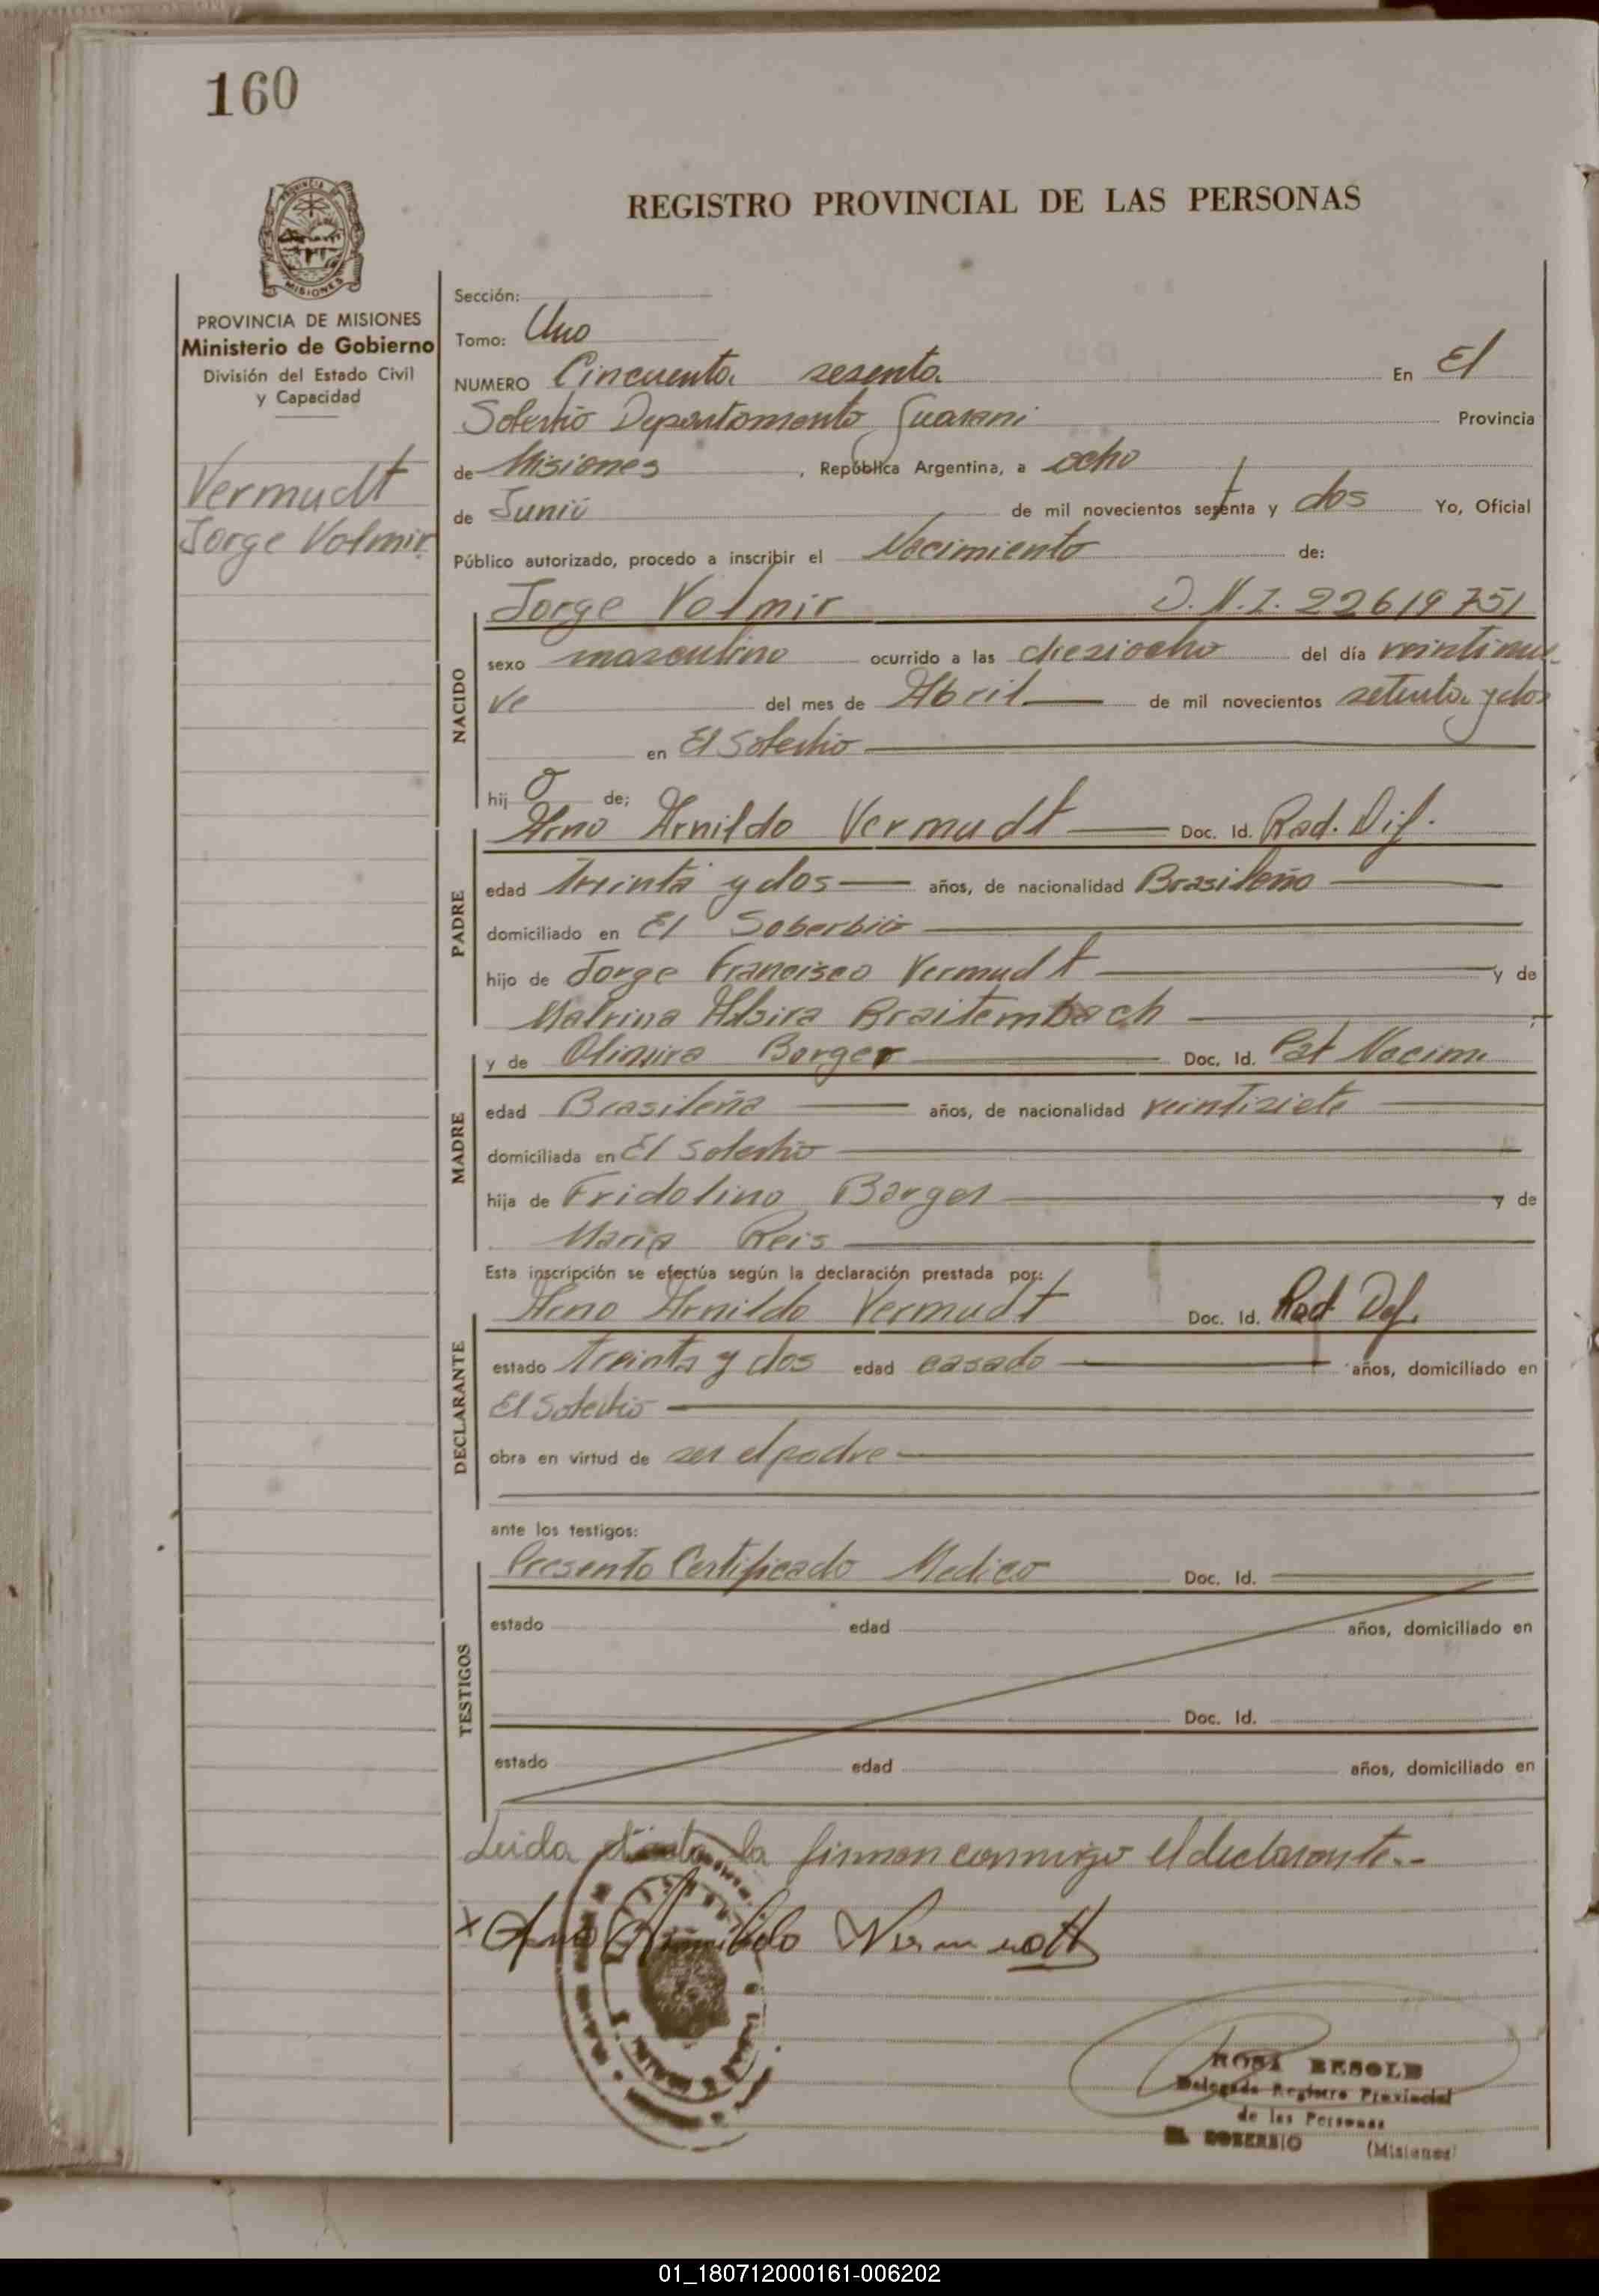 160
PROVINCIA DE MISIONES
REGISTRO PROVINCIAL DE LAS PERSONAS
PROVINCIA DE MISIONES
Ministerio de Gobierno
División del Estado Civil
y Capacidad
Vermudt
Jorge Valmir
Sección:
Tomo: Uno
NUMERO Cincuenta sesenta En El
Soberbio Departamento Guarani Provincia
de Misiones, República Argentina, a ocho
de Junio de mil novecientos setenta y dos Yo, Oficial
Público autorizado, procedo a inscribir el Nacimiento de:
NACIDO
Jorge Valmir D.N.I. 22619751
sexo masculino ocurrido a las dieziocho del día veintinue-
ve del mes de Abril de mil novecientos setenta y dos
en El Soberbio
hij o de;
PADRE
Arno Arnildo Vermudt Doc. Id. Rad. Dif.
edad Treinta y dos años, de nacionalidad Brasileño
domiciliado en El Soberbio
hijo de Jorge Francisco Vermudt y de
Malvina Braitembach
MADRE
y de Borger Doc. Id.
edad Brasileña años, de nacionalidad veintisiete
domiciliada en El Soberbio
hija de Fridolino Borger y de
Maria Reis
Esta inscripción se efectúa según la declaración prestada por:
DECLARANTE
Arno Arnildo Vermudt Doc. Id. Rad.
estado Treinta y dos edad casado años, domiciliado en
El Soberbio
obra en virtud de ser el padre
ante los testigos:
TESTIGOS
Presento Certificado Medico Doc. Id.
estado edad años, domiciliado en
Doc. Id.
estado edad años, domiciliado en
Leida la firman conmigo el declarante.-
x Arno Arnildo
ROSA BESOLD
Delegada Registro Provincial
de las Personas
EL SOBERBIO (Misiones)
01_180712000161-006202